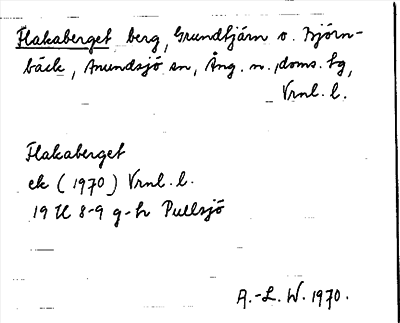 Flakaberget berg, Grundtjärn o. Björn-
bäck, Anundsjö sn, Ång. n., doms. tg,
Vrnl. l.
Flakaberget
ek (1970) Vrnl. l.
19 H 8-9 g-h Pullsjö
A.-L. W. 1970.